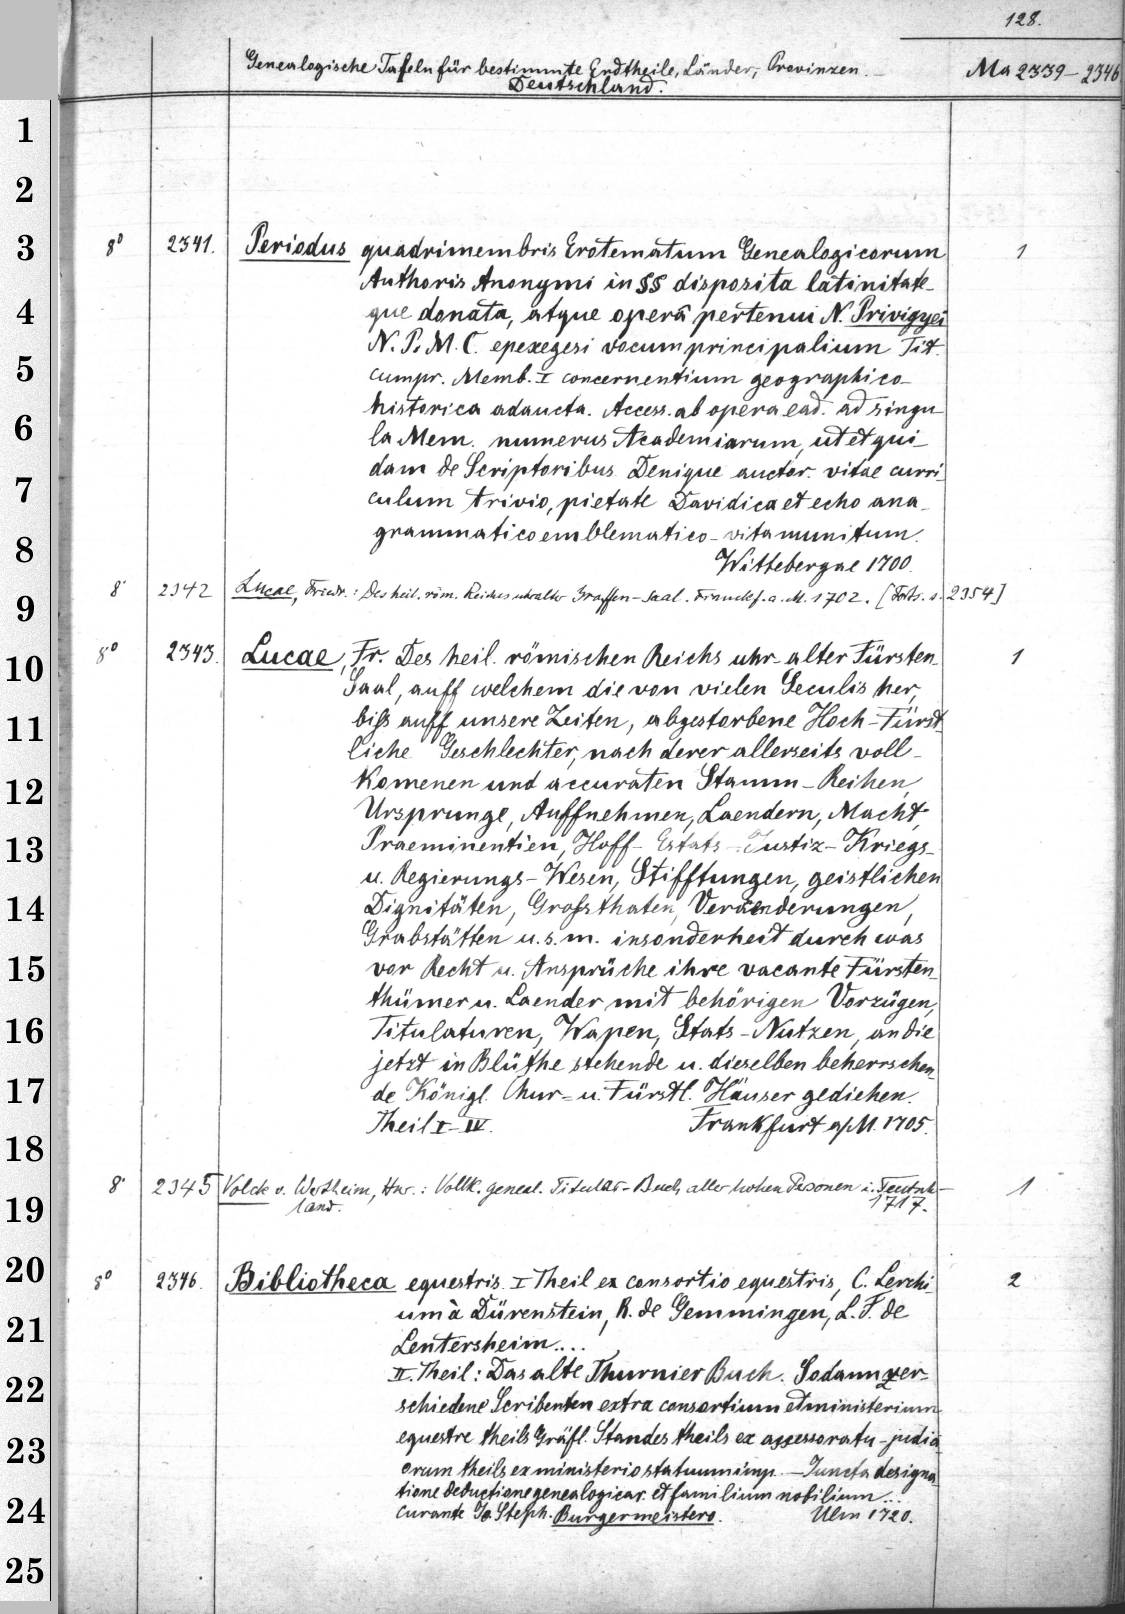 128.
Genealogische Tafeln für bestimmte Erdtheile, Länder, Provinzen.
Ma 2339-2346
Deutschland.
1
2
3
8° 2341. Periodus quadrimembris Erotematum Genealogicorum 1
Authoris Anonymi in §§ disposita latinitate-
4
que donata, atque operâ pertenui N. Privigyei
N. P. M. C. epexegesi vocum principalium Tit.
5
cumpr. Memb. I concernentium geographico-
historica adaucta. Access. ab opera ead. ad singu-
6
la Mem. numerus Academiarum, ut et qui-
dam de Scriptoribus. Denique auctor. vitae curri-
7
culum trivio, pietate Davidica et echo ana-
grammatico emblematico-vita munitum.
8
Wittebergae 1700.
8° 2342 Lucae, Friedr.: Des heil. röm. Reiches uhralter Graffen-Saal. Franckf. a. M. 1702. [Forts. s. 2354]
9
8° 2343. Lucae, Fr. Des heil. römischen Reichs uhr-alter Fürsten- 1
10
Saal, auff welchem die von vielen Seculis her,
11
biss auff unsere Zeiten, abgestorbene Hoch-Fürst-
liche Geschlechter, nach derer allerseits voll-
12
komenen und accuraten Stamm-Reihen,
Ursprunge, Auffnehmen, Laendern, Macht,
13
Praeminentien, Hoff- Estats- Justiz- Kriegs-
u. Regierungs-Wesen, Stifftungen, geistlichen
14
Dignitäten, Grossthaten, Veraenderungen,
Grabstätten u. s. m. insonderheit durch was
15
vor Recht u. Ansprüche ihre vacante Fürsten-
thümer u. Laender mit behörigen Vorzügen,
16
Titulaturen, Wapen, Stats-Nutzen, an die
jetzt in Blüthe stehende u. dieselben beherrschen-
17
de Königl. Chur- u. Fürstl. Häuser gediehen.
Theil I-IV. Frankfurt a/M. 1705.
18
8° 2345 Volck v. Wertheim, Hnr.: Vollk. geneal. Titular-Buch aller hohen Personen i. Teutsch- 1
land. 1717.
19
20
8° 2346. Bibliotheca equestris. I Theil ex consortio equestris, C. Lerchi- 2
um à Dürenstein, R. de Gemmingen, L. F. de
21
Lentersheim....
II. Theil: Das alte Thurnier Buch. Sodann ver-
22
schiedene Scribenten extra consortium et ministerium
equestre theils Gräfl. Standes theils ex assessoratu-judici-
23
orum theils ex ministerio statuum imp. — Juncta designa-
tione deductione genealogicar. et familium nobilium...
24
curante Jo. Steph. Burgermeistero. Ulm 1720.
25